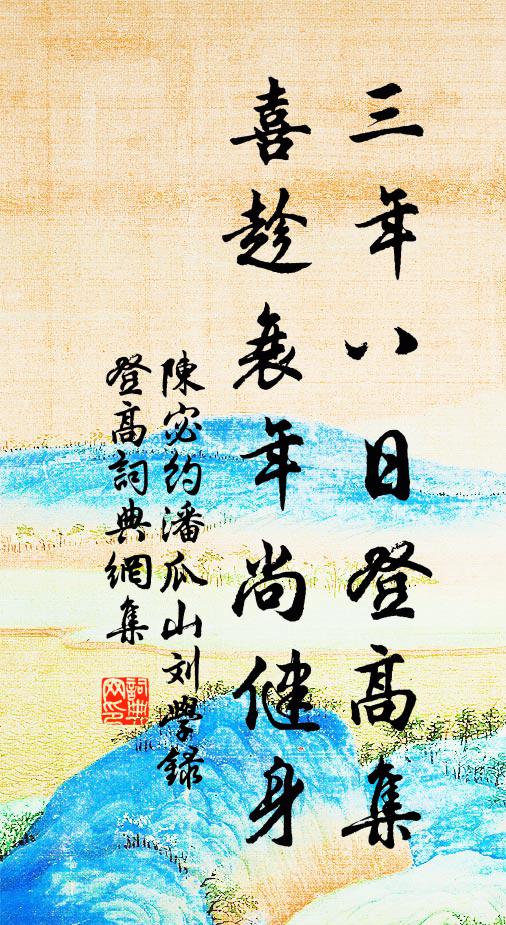 三年八日登高集
喜趁衰年尚健身
陳宓約潘瓜山刘學録
登高詞典網集
詞典
网印